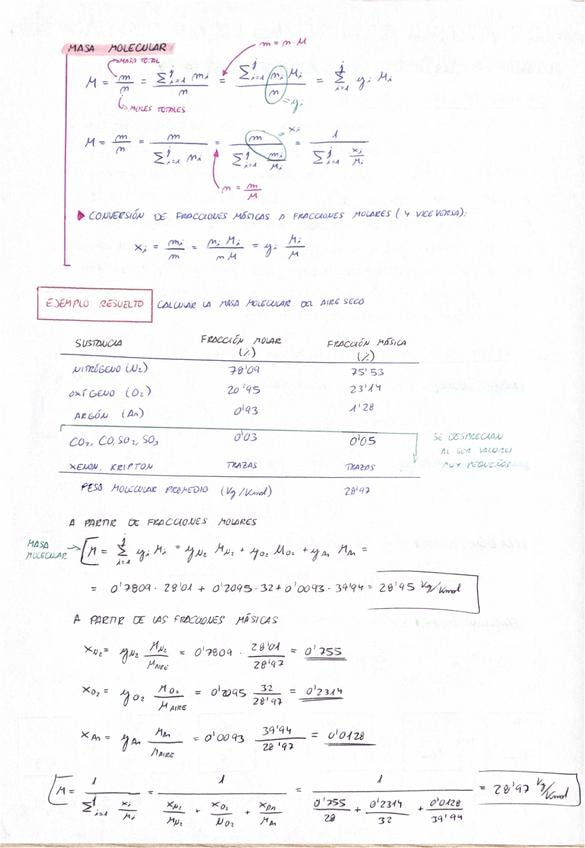 MASA MOLECULAR
m = n M
MASA TOTAL
M = m/n = Σ_{i=1}^{j} m_i / n = Σ_{i=1}^{j} n_i M_i / n = Σ_{i=1}^{j} y_i M_i
= y_i
MOLES TOTALES
= x_i
M = m/n = m / Σ_{i=1}^{j} n_i = m / Σ_{i=1}^{j} m_i/M_i = 1 / Σ_{i=1}^{j} x_i/M_i
n = m/M
▶ CONVERSIÓN DE FRACCIONES MÁSICAS A FRACCIONES MOLARES (Y VICEVERSA):
x_i = m_i/m = n_i M_i / n M = y_i M_i/M
EJEMPLO RESUELTO CALCULAR LA MASA MOLECULAR DEL AIRE SECO
SUSTANCIA FRACCIÓN MOLAR (%) FRACCIÓN MÁSICA (%)
NITRÓGENO (N₂) 78'09 75'53
OXÍGENO (O₂) 20'95 23'14
ARGÓN (Ar) 0'93 1'28
CO₂, CO, SO₂, SO₃ 0'03 0'05
SE DESPRECIAN
AL SER VALORES
MUY PEQUEÑOS
XENON, KRIPTON TRAZAS TRAZAS
PESO MOLECULAR PROMEDIO (Kg/Kmol) 28'97
A PARTIR DE FRACCIONES MOLARES
MASA
MOLECULAR
M = Σ_{i=1}^{j} y_i M_i = y_N₂ M_N₂ + y_O₂ M_O₂ + y_Ar M_Ar =
= 0'7809 · 28'01 + 0'2095 · 32 + 0'0093 · 39'94 = 28'95 Kg/Kmol
A PARTIR DE LAS FRACCIONES MÁSICAS
x_N₂ = y_N₂ M_N₂/M_AIRE = 0'7809 · 28'01/28'97 = 0'755
x_O₂ = y_O₂ M_O₂/M_AIRE = 0'2095 32/28'97 = 0'2314
x_Ar = y_Ar M_Ar/M_AIRE = 0'0093 39'94/28'97 = 0'0128
M = 1 / Σ_{i=1}^{j} x_i/M_i = 1 / (x_N₂/M_N₂ + x_O₂/M_O₂ + x_Ar/M_Ar) = 1 / (0'755/28 + 0'2314/32 + 0'0128/39'94) = 28'97 Kg/Kmol